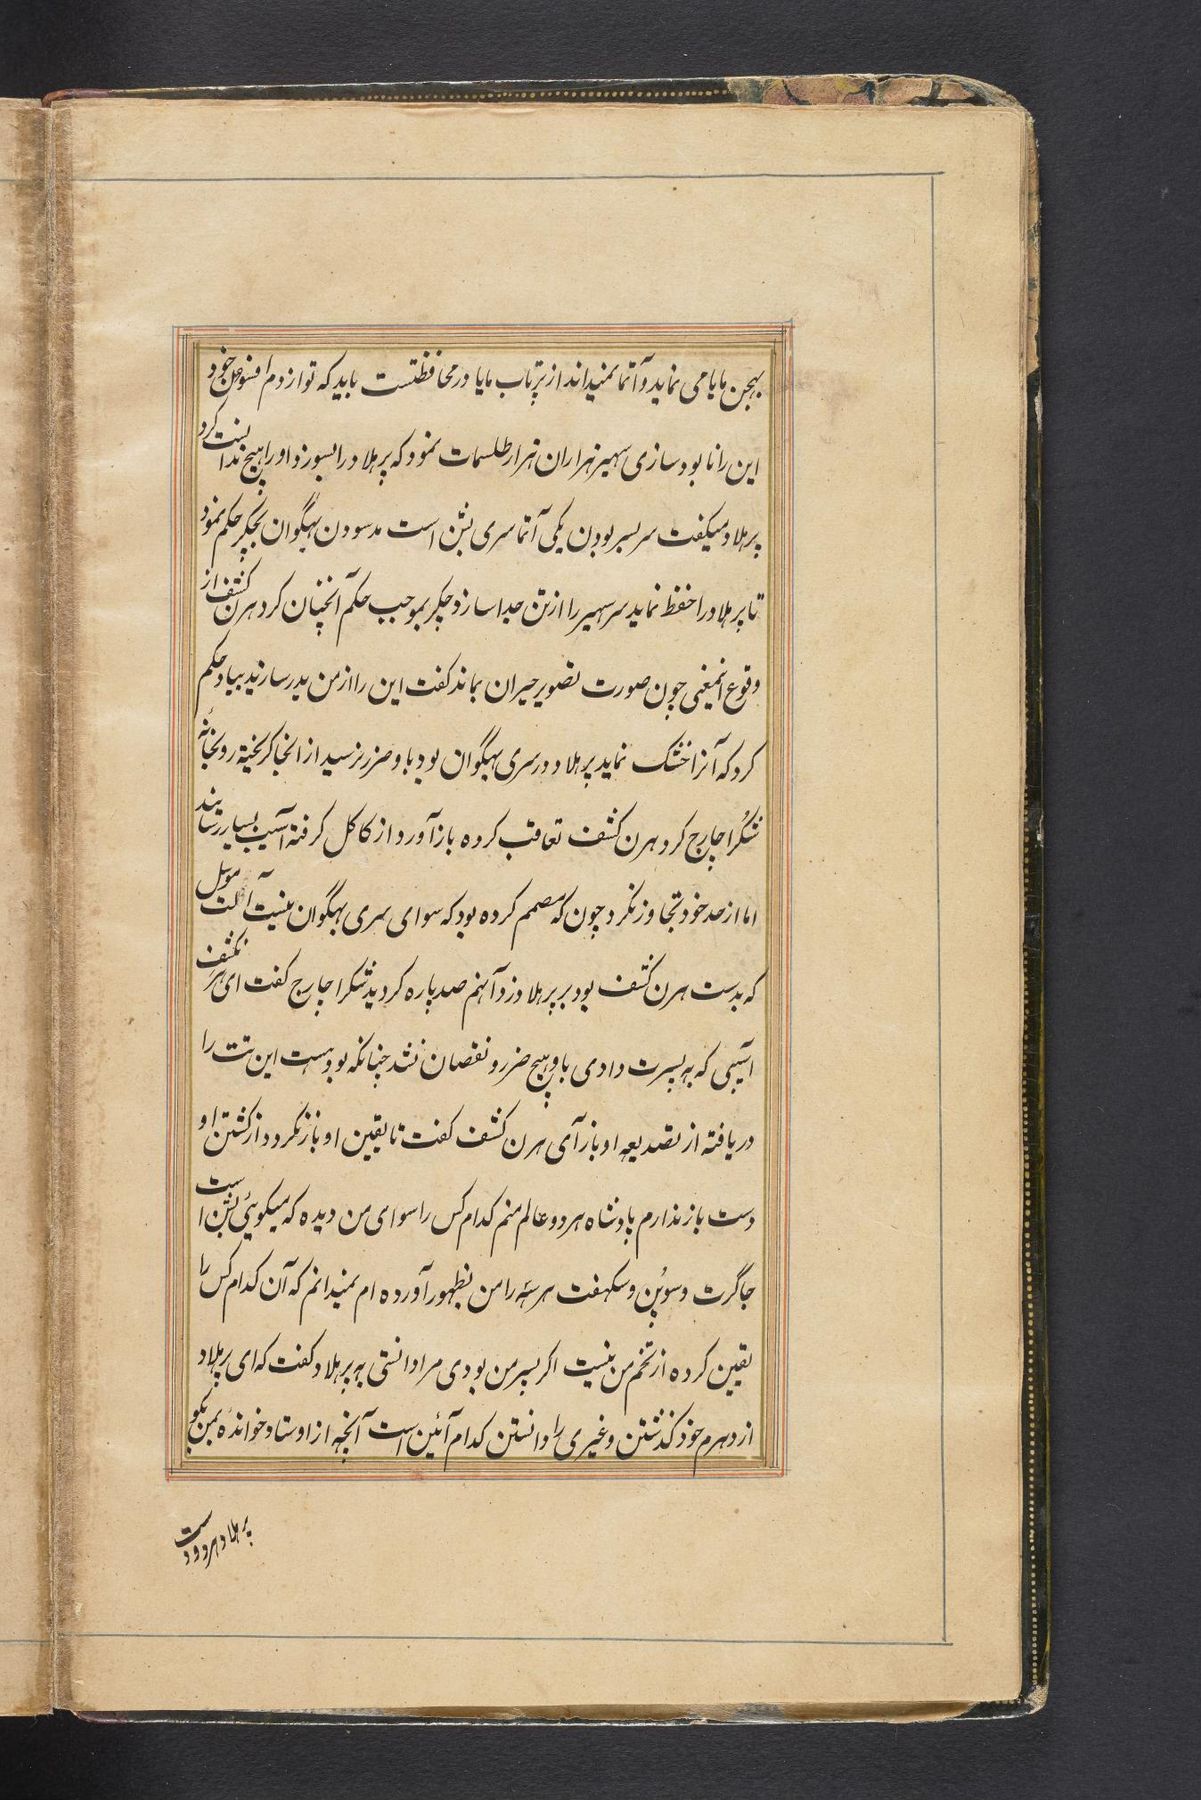 بهجن مایا می نماید و آتما نمیداند از پرتاب مایا در محافظتست باید که تو از دم افسون خود
این را نابود سازی سهیر هزاران هزار طلسمات نمود که پرهلاد را بسوزد او را هیچ ندانست کرد
پرهلاد میکفت سربسر بودن یکی آتما سری بشن است مدسودن بهگوان بچکر حکم نمود
تا پرهلاد را حفظ نماید سر سهیر را از تن جدا سازد چکر بموجب حکم آنچنان کرد هرن کشف از
وقوع اینمعنی چون صورت تصویر حیران بماند کفت این را از من بدر سازید بیاد حکم
کرد که آنرا خشک نماید پرهلاد در سری بهگوان بود باو ضرر نرسید از انجا کریخته رو بخانه
شکرا چارج کرد هرن کشف تعاقب کرده باز آورد از کاکل کرفته آسیب بسیار رسانید
اما از حد خود تجاوز نکرد چون که مصمم کرده بود که سوای سری بهگوان نیست آلت موسل
که بدست هرن کشف بود بر پرهلاد زد آنهم صد پاره کردید شکرا چارج کفت ای هرنکشف
آسیبی که به پسرت دادی باو هیچ ضرر و نقصان نشد چنانکه بود هست این تت را
دریافته از تصدیعه او باز آی هرن کشف کفت تا یقین او باز نکردد از کشتن او
دست باز ندارم پادشاه هر دو عالم منم کدام کس را سوای من دیده که میکوئی بشن است
جاگرت و سوپن و سکهفت هر سه را من بظهور آورده ام نمیدانم که آن کدام کس را
یقین کرده از تخم من نیست اکر پسر من بودی مرا دانستی به پرهلاد کفت که ای پرهلاد
از دهرم خود کذشتن و غیری را دانستن کدام آئین است آنچه از اوستاد خوانده بمن بکو
پرهلاد